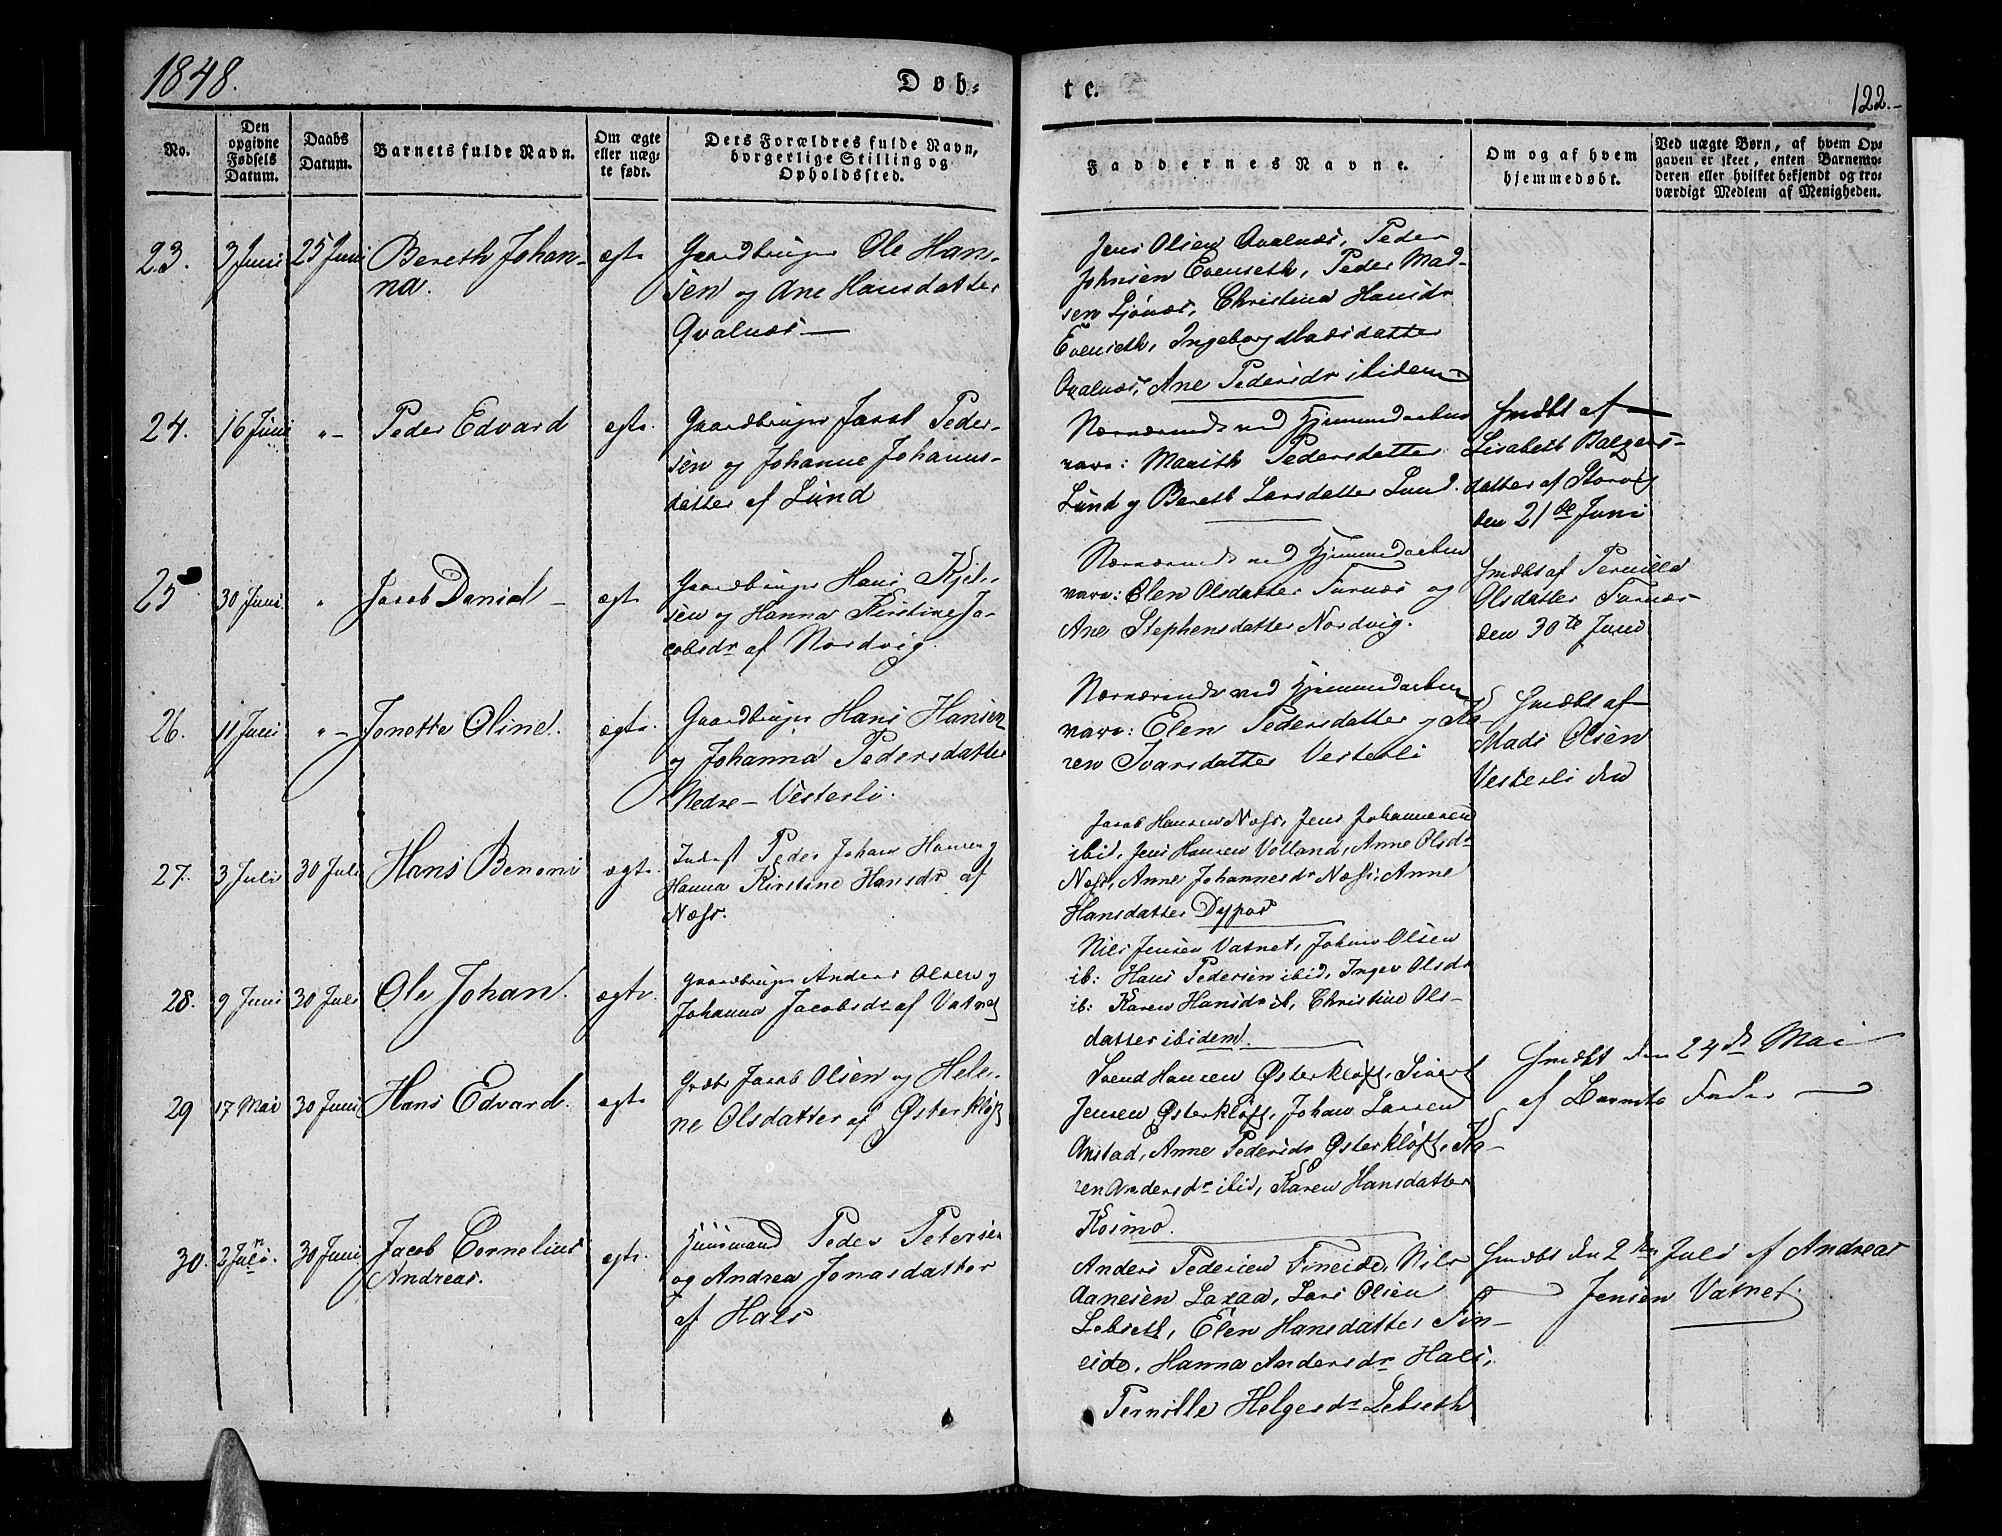 1848.
Døb-
te.
122.
No.
Den opgivne Fødsels Datum.
Daabs Datum.
Barnets fulde Navn.
Om ægte eller uægte født.
Dets Forældres fulde Navn, borgerlige Stilling og Opholdssted.
Faddernes Navne.
Om og af hvem hjemmedøbt.
Ved uægte Børn, af hvem Opgaven er skeet, enten Barnemoderen eller hvilket bekjendt og troværdigt Medlem af Menigheden.
23. 3 Juni 25 Juni Bereth Johan-
na.
ægte
Gaardbruger Ole Han-
sen og Ane Hansdatter
Qvalnæs
Jens Olsen Qvalnæs, Peder
Johnsen Evenseth, Peder Mad-
sen Sjönæs, Christina Hansdr
Evenseth, Ingeborg Madsdatter
Qvalnæs, Ane Pedersdr ibidem
24. 16 Juni "- Peder Edvard ægte.
Gaardbruger Jacob Peder-
sen og Johanne Johannes-
datter af Lund
Nærværende ved Hjemmedaaben
vare: Marith Pedersdatter
Lund og Bereth Larsdatter Lund.
Hmdbt af
Lisabeth Balzers-
datter af Storvig
den 21de Juni
25 30 Juni " Jacob Daniel ægte
Gaardbruger Hans Kjel-
sen og Hanna Kirstine Ja-
cobsdr af Nordvig.
Nærværende ved Hjemmedaaben
vare: Elen Olsdatter Furnæs og
Ane Stephensdatter Nordvig.
Hmdbt af Pernilla
Olsdatter Furnæs
den 30te Juni
26. 11 Juni "- Jonette Oline. ægte.
Gaardbruger Hans Hansen
og Johanna Pedersdatter
Nedre-Vesterli.
Nærværende ved Hjemmedaaben
vare: Elen Pedersdatter og Ka-
ren Ivarsdatter Vesterli
Hmdbt af
Mads Olsen
Vesterli den
27. 3 Juli 30 Juli Hans Benoni ægte
Inderst Peder Johan Hansen og
Hanna Kirstine Hansdr af
Næss.
Jacob Hansen Næss, Jens Johannesen
ibid, Jens Hansen Volland, Anne Olsdr
Næss, Anne Johannesdr Næss, Anne
Hansdatter Dypos
28. 9 Juni 30 Juli Ole Johan. ægte.
Gaardbruger Anders Olsen og
Johanna Jacobsdr af Vatnet
Nils Jensen Vatnet, Johan Olsen
ib: Hans Pedersen ibid, Inger Olsdr
ib: Karen Hansdr ib, Christine Ols-
datter ibidem.
29 17 Mai 30 Juni Hans Edvard. ægte
Jacob Olsen og Hele-
ne Olsdatter af Østerkløft
Svend Hansen Østerkløft, Sivert
Jensen Østerkløft, Johan Larsen
Anstad, Anne Pedersdr Østerkløft, Ka-
ren Andersdr ibid, Karen Hansdatter
Kosmo.
Hmdbt den 24de Mai
af Barnets Fader
30. 2 Juli. 30 Juni Jacob Cornelius
Andreas.
ægte.
Huusmand Peder Petersen
og Andrea Jonasdatter
af Hals
Anders Pedersen Fineide, Nils
Aanesen Laxaa, Lars Olsen
Lebseth, Elen Hansdatter Fin-
eide, Hanna Andersdr Hals,
Pernille Helgesdr Lebseth
Hmdbt den 2den Juli af Andreas
Jensen Vatnet.